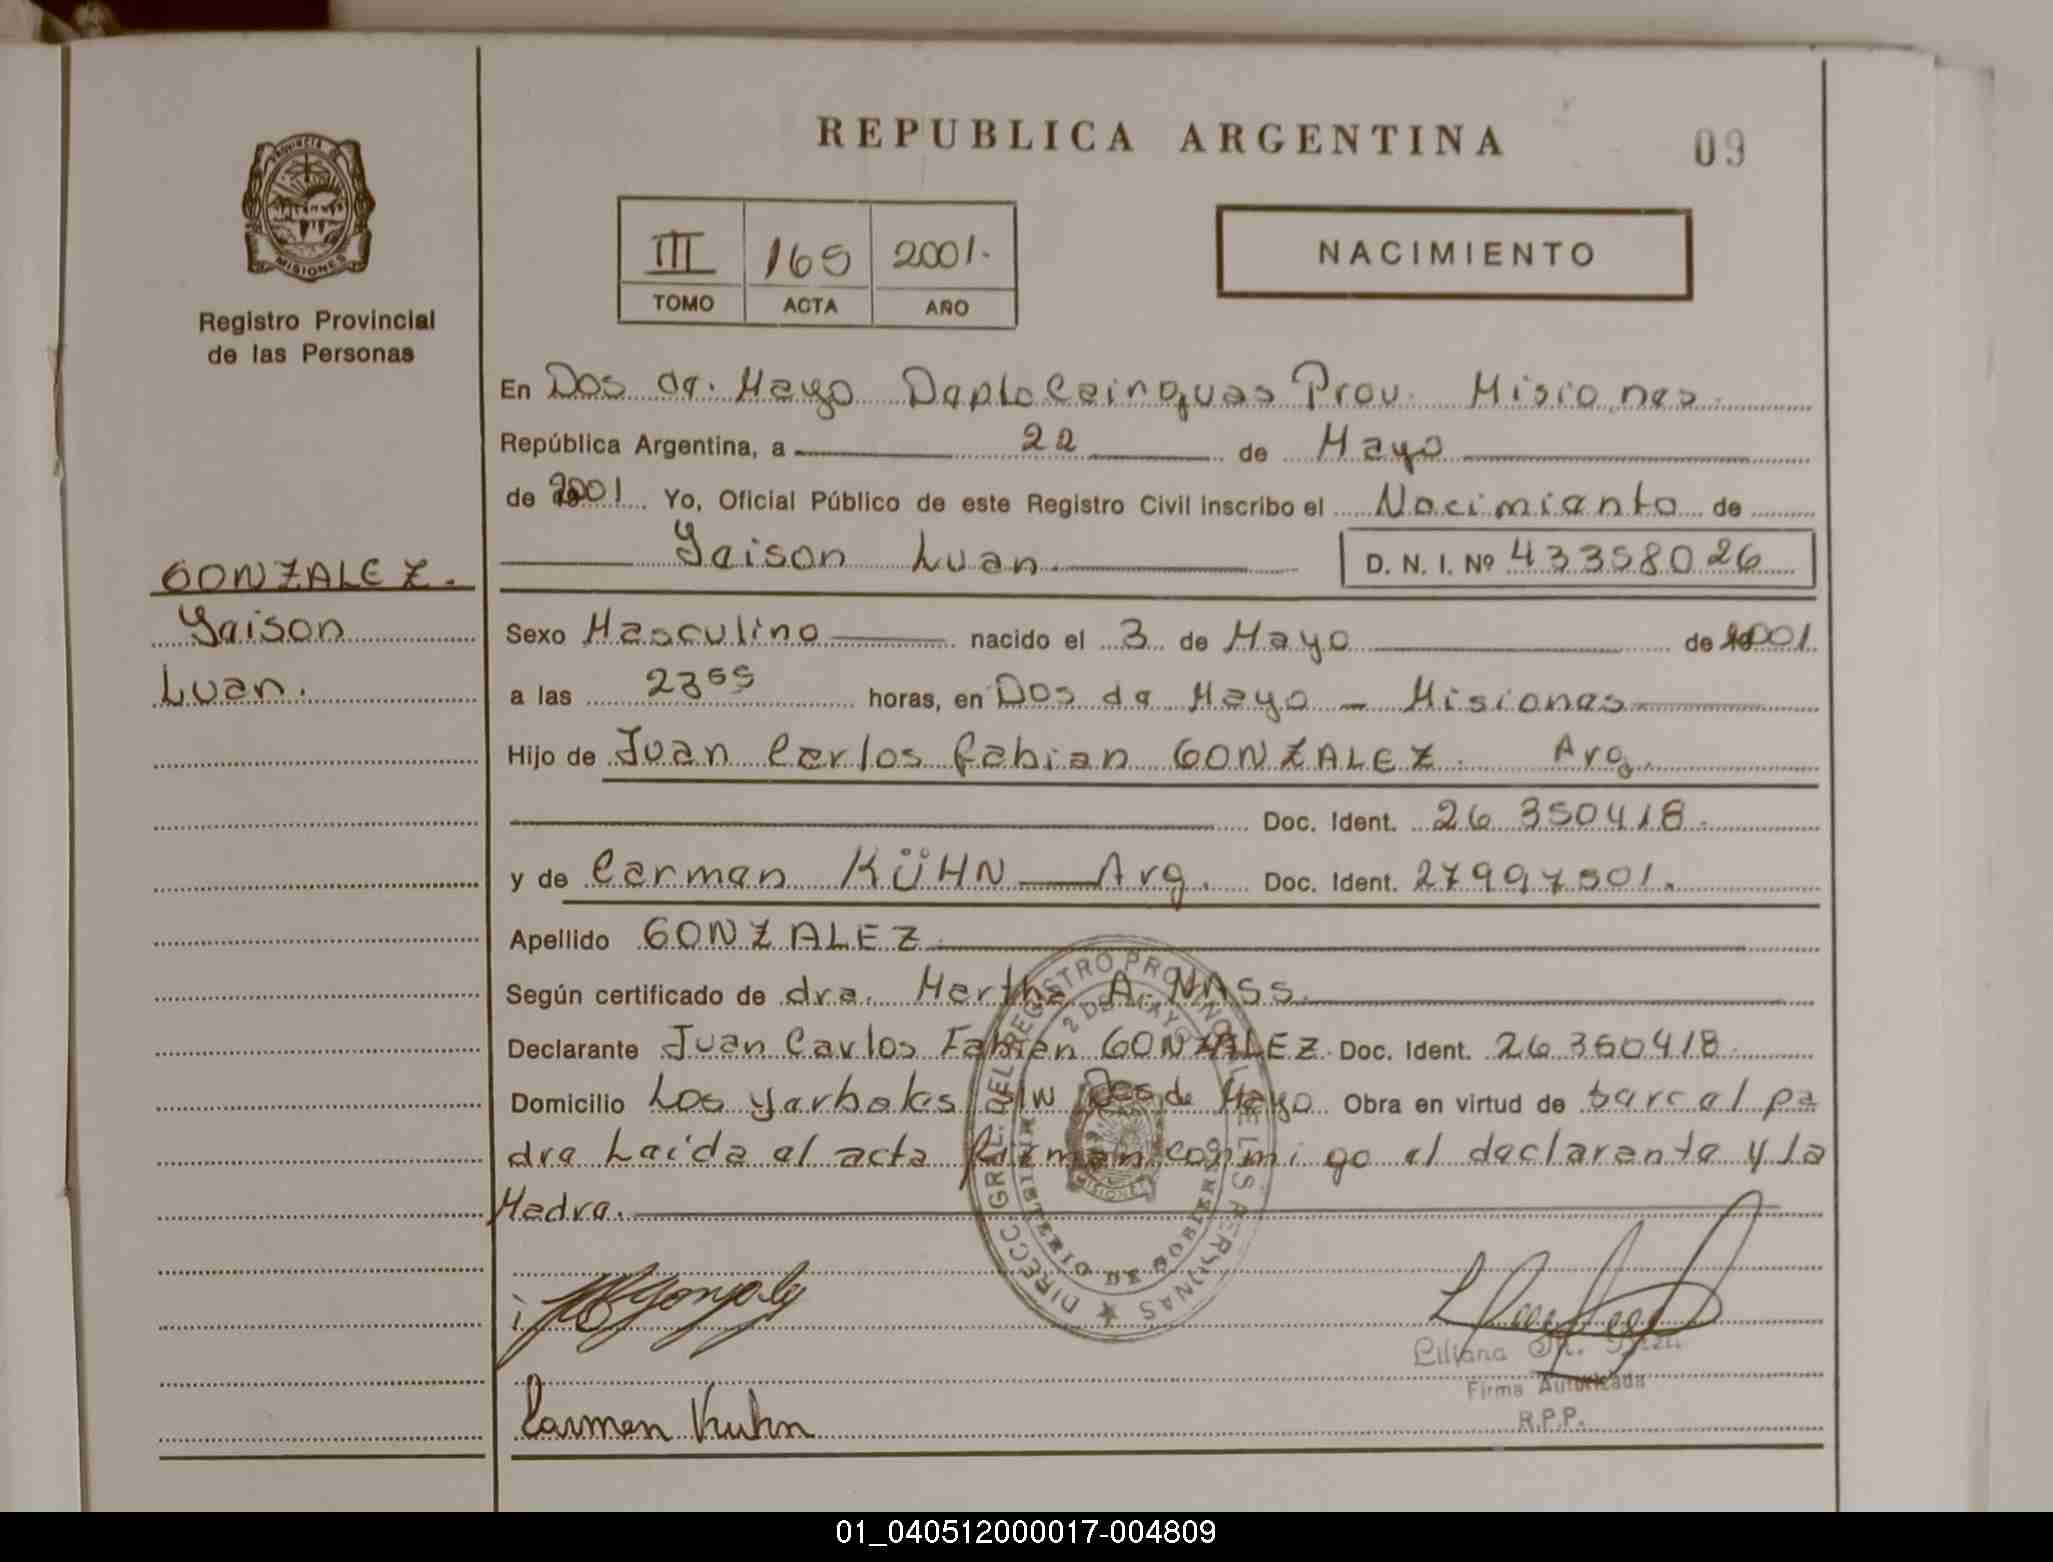 REPUBLICA ARGENTINA
09
PROVINCIA DE
MISIONES
Registro Provincial
de las Personas
III 165 2001.
TOMO ACTA AÑO
NACIMIENTO
En Dos de Mayo Depto Cainguas Prov. Misiones
República Argentina, a 22 de Mayo
de 2001 Yo, Oficial Público de este Registro Civil inscribo el Nacimiento de
Yaison Luan. D. N. I. Nº 43358026
GONZALEZ.
Yaison
Luan.
Sexo Masculino nacido el 3 de Mayo de 2001
a las 23 55 horas, en Dos de Mayo - Misiones
Hijo de Juan Carlos Fabian GONZALEZ Arg.
Doc. Ident. 26 350418.
y de Carmen KÜHN Arg. Doc. Ident. 27997501.
Apellido GONZALEZ
Según certificado de dra. Martha A. NASS.
Declarante Juan Carlos Fabian GONZALEZ. Doc. Ident. 26 350418.
Domicilio Los yerbales S/N Dos de Mayo Obra en virtud de ser el pa
dre Leida el acta firman conmigo el declarante y la
Madre.
DIRECC GRAL. DEL REGISTRO PROVINCIAL DE LAS PERSONAS
2 DE MAYO
MISIONES
Carmen Kuhn
Liliana M.
Firma Autorizada
R.P.P.
01_040512000017-004809